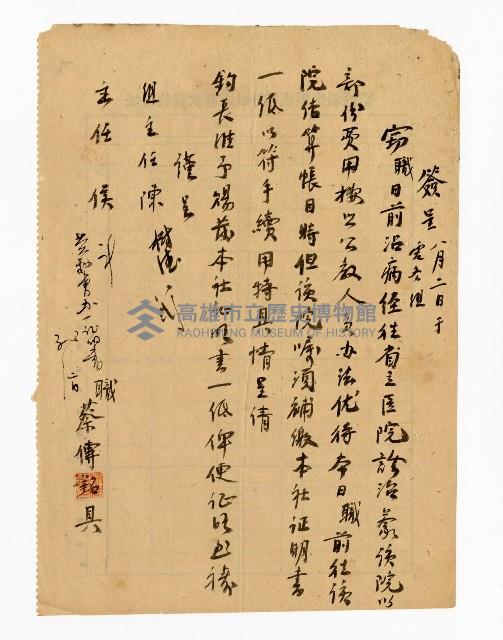 簽呈 八月二日于
竊職日前沿病經往省立医院診治蒙該院以
部份費用按公教人員办法优待今日職前往該
院结算帳目時但該院嘱須補繳本社证明書
一紙以符手續用特具情呈请
鈞長准予賜發本社證明書一紙俾便证明为禱
謹呈
组主任陳
主任侯
職蔡傳銘具
高雄市立歷史博物館
KAOHSIUNG MUSEUM OF HISTORY